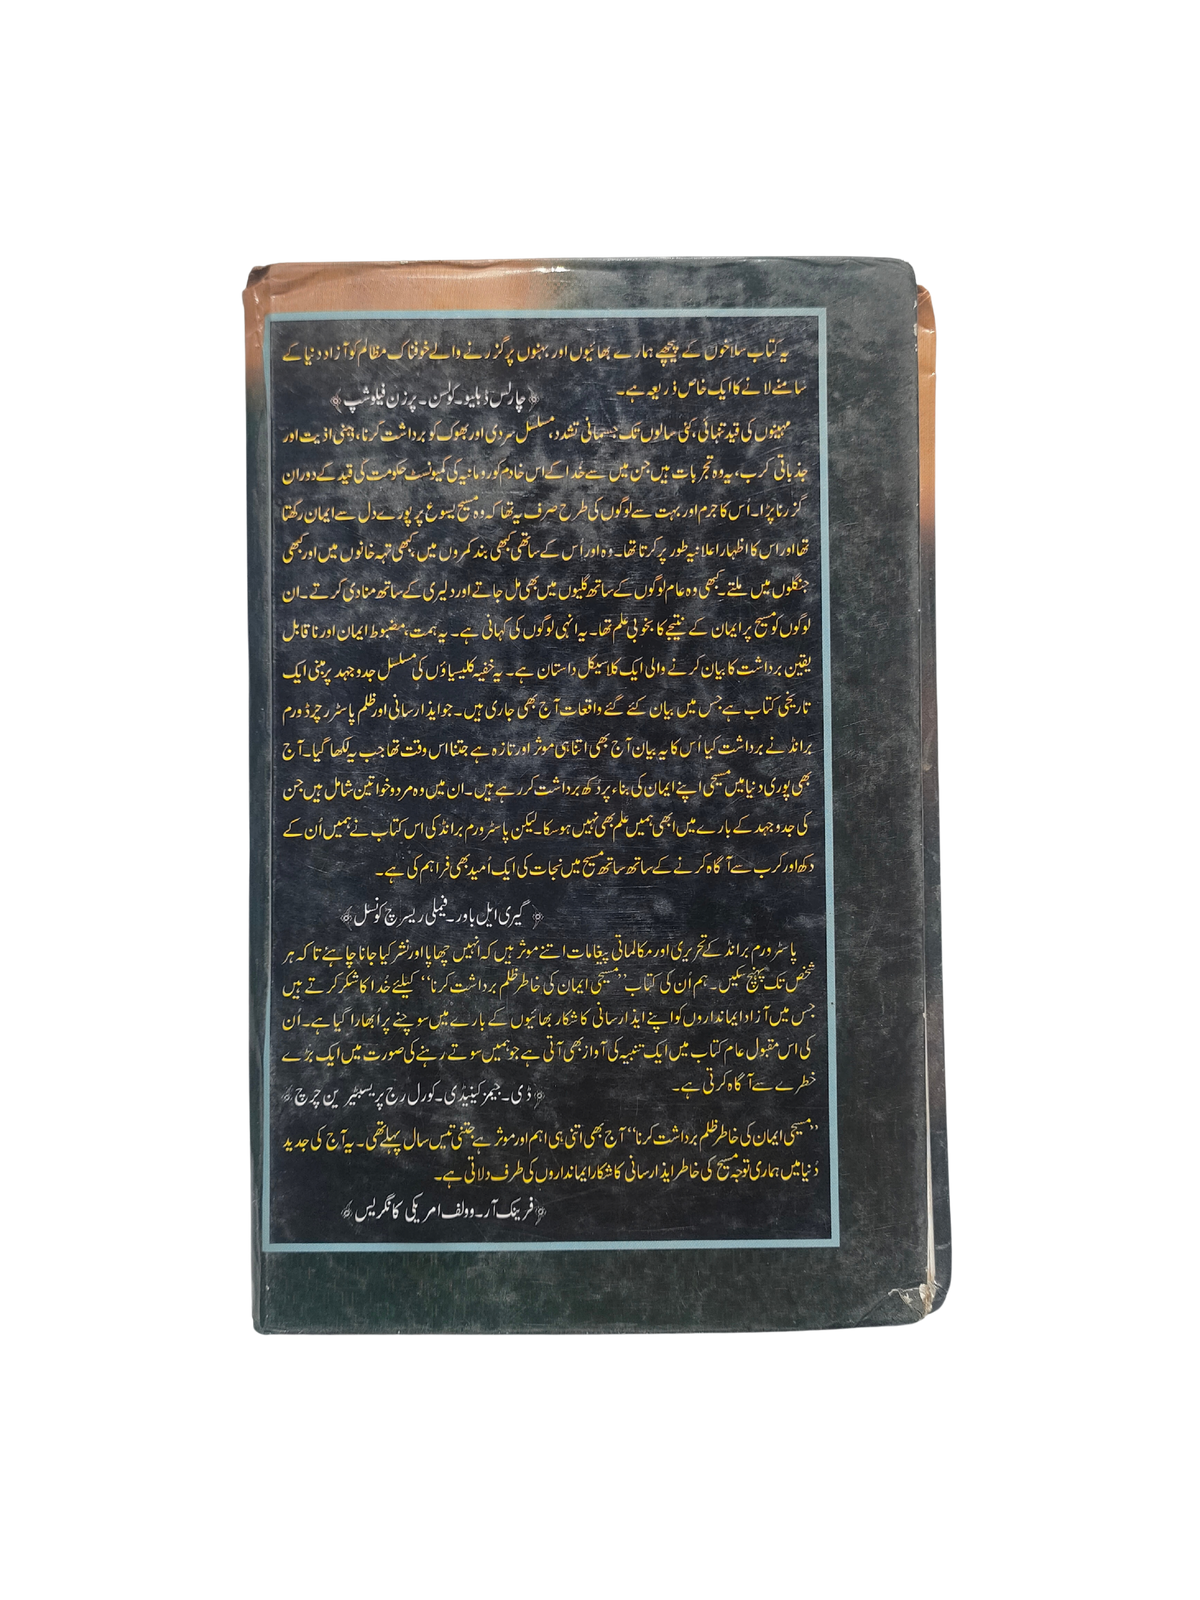 یہ کتاب سلاخوں کے پیچھے ہمارے بھائیوں اور بہنوں پر گزرنے والے خوفناک مظالم کو آزاد دنیا کے
سامنے لانے کا ایک خاص ذریعہ ہے۔
﴿چارلس ڈبلیو۔ کولسن۔ پرزن فیلوشپ﴾
مہینوں کی قید تنہائی، کئی سالوں تک جسمانی تشدد، مسلسل سردی اور بھوک کو برداشت کرنا، ذہنی اذیت اور
جذباتی کرب، یہ وہ تجربات ہیں جن میں سے خُدا کے اس خادم کو رومانیہ کی کمیونسٹ حکومت کی قید کے دوران
گزرنا پڑا۔ اُس کا جرم اور بہت سے لوگوں کی طرح صرف یہ تھا کہ وہ مسیح یسوع پر پورے دل سے ایمان رکھتا
تھا اور اس کا اظہار اعلانیہ طور پر کرتا تھا۔ وہ اور اُس کے ساتھی کبھی بند کمروں میں، کبھی تہہ خانوں میں اور کبھی
جنگلوں میں ملتے۔ کبھی وہ عام لوگوں کے ساتھ گلیوں میں بھی مل جاتے اور دلیری کے ساتھ منادی کرتے۔ ان
لوگوں کو مسیح پر ایمان کے نتیجے کا بخوبی علم تھا۔ یہ انہی لوگوں کی کہانی ہے۔ یہ ہمت، مضبوط ایمان اور ناقابل
یقین برداشت کا بیان کرنے والی ایک کلاسیکل داستان ہے۔ یہ خفیہ کلیسیاؤں کی مسلسل جدوجہد پر مبنی ایک
تاریخی کتاب ہے جس میں بیان کئے گئے واقعات آج بھی جاری ہیں۔ جو ایذارسانی اور ظلم پاسٹر رچرڈ ورم
برانڈ نے برداشت کیا اُس کا یہ بیان آج بھی اتنا ہی موثر اور تازہ ہے جتنا اس وقت تھا جب یہ لکھا گیا۔ آج
بھی پوری دنیا میں مسیحی اپنے ایمان کی بناء پر دُکھ برداشت کر رہے ہیں۔ ان میں وہ مرد و خواتین شامل ہیں جن
کی جدوجہد کے بارے میں ابھی ہمیں علم بھی نہیں ہوسکا۔ لیکن پاسٹر ورم برانڈ کی اس کتاب نے ہمیں اُن کے
دکھ اور کرب سے آگاہ کرنے کے ساتھ ساتھ مسیح میں نجات کی ایک اُمید بھی فراہم کی ہے۔
﴿گیری ایل باور۔ فیملی ریسرچ کونسل﴾
پاسٹر ورم برانڈ کے تحریری اور مکالماتی پیغامات اتنے موثر ہیں کہ انہیں چھاپا اور نشر کیا جانا چاہئے تا کہ ہر
شخص تک پہنچ سکیں۔ ہم اُن کی کتاب ’’مسیحی ایمان کی خاطر ظلم برداشت کرنا‘‘ کیلئے خُدا کا شکر کرتے ہیں
جس میں آزاد ایمانداروں کو اپنے ایذارسانی کا شکار بھائیوں کے بارے میں سوچنے پر اُبھارا گیا ہے۔ اُن
کی اس مقبول عام کتاب میں ایک تنبیہ کی آواز بھی آتی ہے جو ہمیں سوتے رہنے کی صورت میں ایک بڑے
خطرے سے آگاہ کرتی ہے۔
﴿ڈی۔ جیمز کینیڈی۔ کورل رج پریسبٹیرین چرچ﴾
’’مسیحی ایمان کی خاطر ظلم برداشت کرنا‘‘ آج بھی اتنی ہی اہم اور موثر ہے جتنی تیس سال پہلے تھی۔ یہ آج کی جدید
دُنیا میں ہماری توجہ مسیح کی خاطر ایذارسانی کا شکار ایمانداروں کی طرف دلاتی ہے۔
﴿فرینک آر۔ وولف امریکی کانگریس﴾